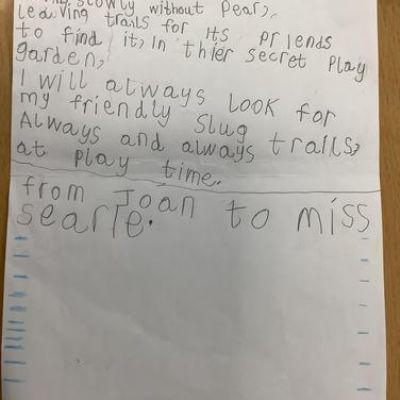 slowly without pear,
Leaving trails for its priends
to find it, In thier secret play
garden,
I will always look for
my friendly slug
Always and always trails,
at play time.
from Joan to miss
searle.